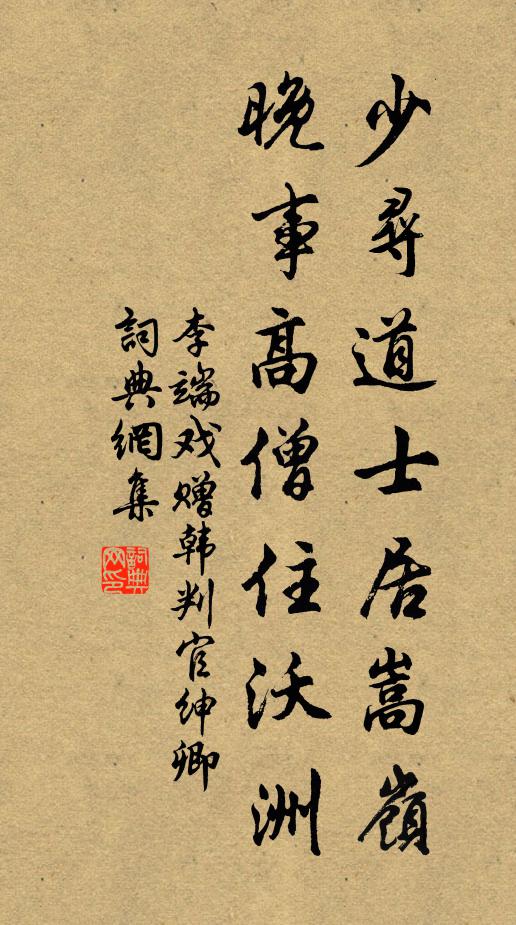 少尋道士居嵩嶺
晚事高僧住沃洲
李端戏赠韩判官绅卿
詞典網集
詞典网印